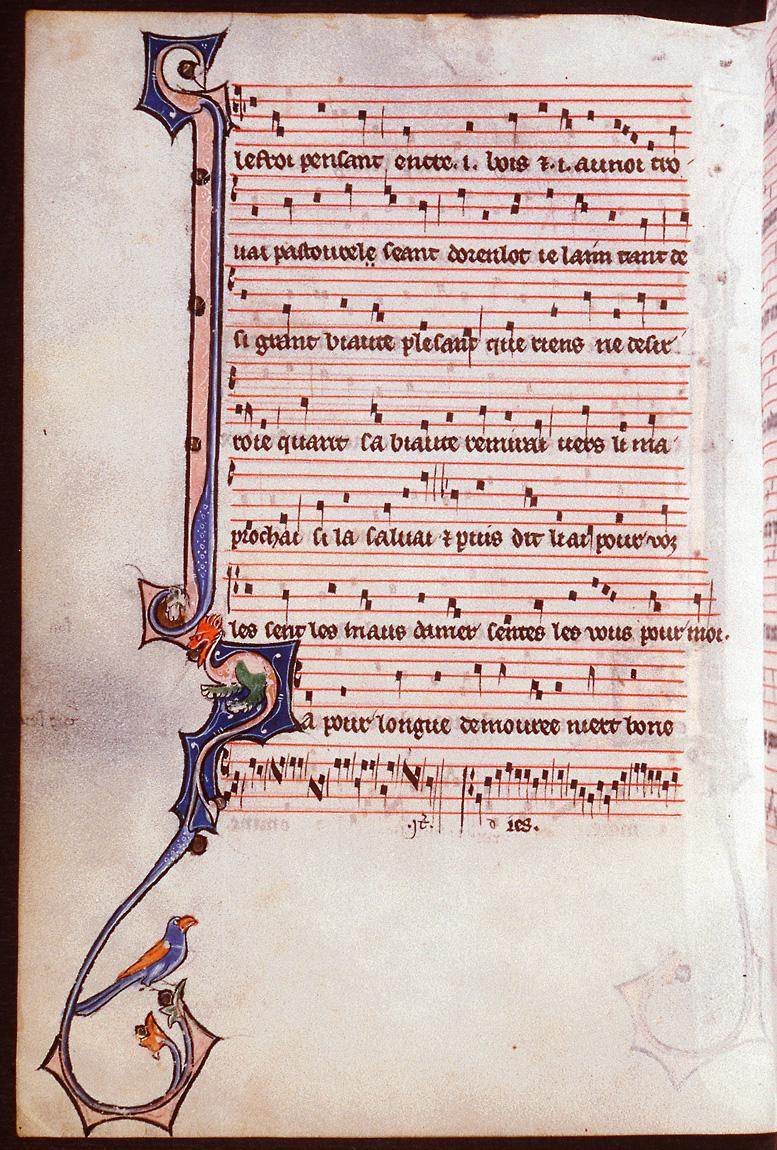 lestroi pensant entre .i. bois ⁊ .i. aunoi tro
uai pastourele seant dorenlot ie laim tant de
si grant biaute plesant que riens ne desir
roie quant sa biaute remirai uers li ma
prochai si la saluai ⁊ puis dit li ai pour voz
les sent les maus damer sentes les vous pour moi.
A pour longue demouree niert bone
d ies.